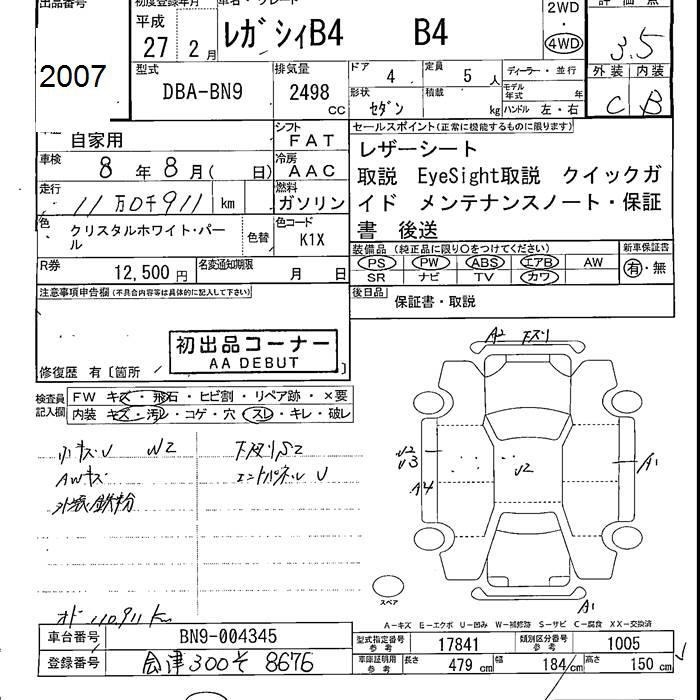 出品番号 初度登録年月 車名・グレード 評価点
平成 27 2月 レガシィB4 B4 2WD・4WD 3.5
2007
型式 DBA-BN9 排気量 2498 CC ドア 4 定員 5 人 ディーラー・並行
形状 セダン 積載 kg モデル年式 年 ハンドル 左・右
外装 内装
C B
自家用 シフト FAT
セールスポイント(正常に機能するものに限ります)
車検 8年8月( 日) 冷房 AAC
走行 11万0千911 km 燃料 ガソリン
レザーシート
取説 EyeSight取説 クイックガ
イド メンテナンスノート・保証
書 後送
色 クリスタルホワイト・パール 色替 色コード K1X
装備品(純正品に限り○をつけてください) 新車保証書
PS PW ABS エアB AW 有・無
SR ナビ TV カワ
R券 12,500円 名変通知期限 月 日
注意事項申告欄(不具合内容等は具体的に記入して下さい)
後日品 保証書・取説
初出品コーナー
AA DEBUT
修復歴 有〔箇所 〕
検査員記入欄 FW キズ・飛石・ヒビ割・リペア跡・×要
内装 キズ・汚レ・コゲ・穴・スレ・キレ・破レ
A2 下スリ
小キズU W2 下スリS2
AWキズ エントパネルU
外装鉄粉
U2
U3
A4
U2
A1
スペア
A1
A-キズ E-エクボ U-凹み W-補修跡 S-サビ C-腐食 XX-交換済
オド 110911km
車台番号 BN9-004345 型式指定番号 参考 17841 類別区分番号 参考 1005
登録番号 会津300そ8676 車庫証明用 参考 長さ 479cm 幅 184cm 高さ 150cm